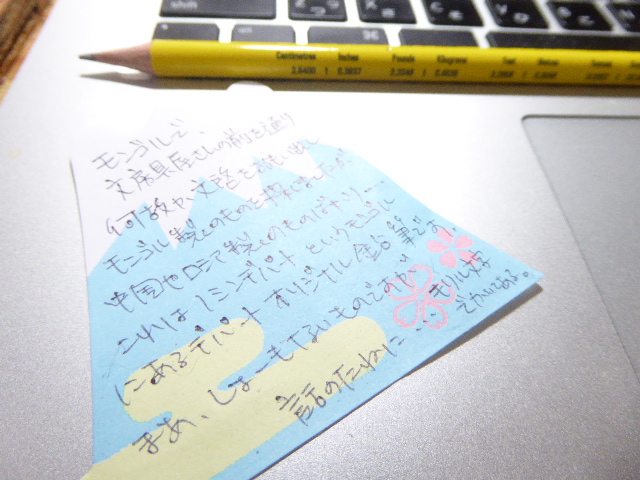 shift
Centimetres Inches Pounds Kilograms
2.5400 1 0.3937 2.2046 1 0.4536
モンゴルで、
文房具屋さんの前を通り
何故か、文路をおもい出し
モンゴル製のものを探しましたが
中国やロシア製のものばかり……
これはノミンデパートというモンゴル
にあるデパートオリジナル鉛筆です。
まあ、しょーもないものですが…
キリル文字
でかいてある。
話のたねに